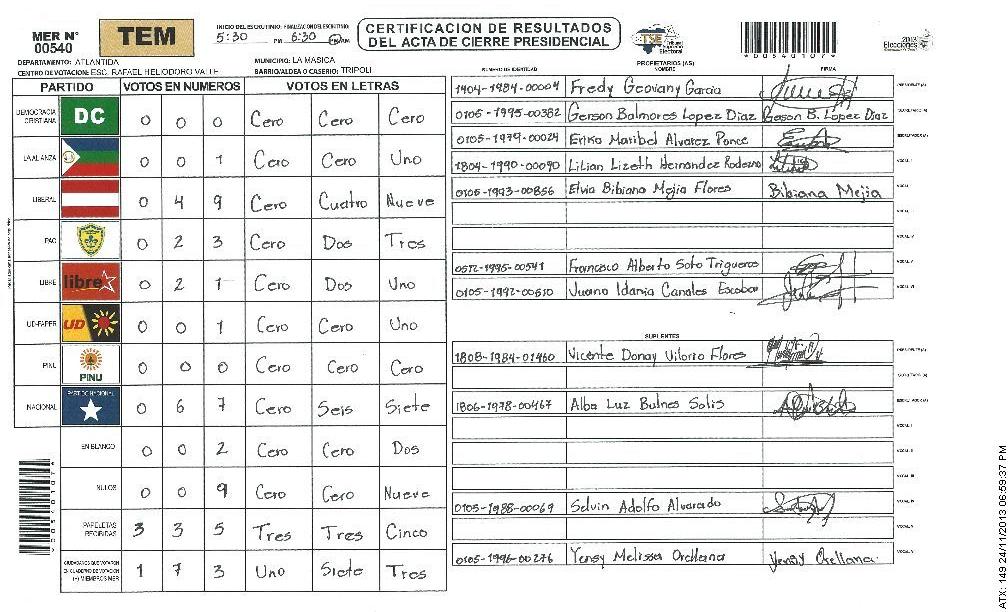 MER N° 00540
TEM
INICIO DEL ESCRUTINIO: FINALIZACION DEL ESCRUTINIO:
5:30 PM 6:30 PM
CERTIFICACION DE RESULTADOS
DEL ACTA DE CIERRE PRESIDENCIAL
TSE
Tribunal Supremo Electoral
2013
Elecciones
*00540107*
DEPARTAMENTO: ATLANTIDA
MUNICIPIO: LA MASICA
CENTRO DE VOTACION: ESC. RAFAEL HELIODORO VALLE
BARRIO/ALDEA O CASERIO: TRIPOLI
PARTIDO VOTOS EN NUMEROS VOTOS EN LETRAS
DEMOCRACIA CRISTIANA DC 0 0 0 Cero Cero Cero
LA ALIANZA 0 0 1 Cero Cero Uno
LIBERAL 0 4 9 Cero Cuatro Nueve
PAC 0 2 3 Cero Dos Tres
LIBRE libre 0 2 1 Cero Dos Uno
UD-FAPER UD 0 0 1 Cero Cero Uno
PINU PINU 0 0 0 Cero Cero Cero
NACIONAL PARTIDO NACIONAL 0 6 7 Cero Seis Siete
EN BLANCO 0 0 2 Cero Cero Dos
NULOS 0 0 9 Cero Cero Nueve
PAPELETAS RECIBIDAS 3 3 5 Tres Tres Cinco
CIUDADANOS QUE VOTARON EN CUADERNO DE VOTACION (+) MIEMBROS MER 1 7 3 Uno Siete Tres
*00540107*
PROPIETARIOS (AS)
NUMERO DE IDENTIDAD NOMBRE FIRMA
1404-1984-00004 Fredy Geovany Garcia PRESIDENTE(A)
0105-1995-00382 Gerson Balmores Lopez Diaz Gerson B. Lopez Diaz SECRETARIO(A)
0105-1979-00024 Erika Maribel Alvarez Ponce ESCRUTADOR(A)
1804-1990-00090 Lilian Lizeth Hernandez Rodezno VOCAL I
0105-1993-00856 Elvia Bibiana Mejia Flores Bibiana Mejia VOCAL II
VOCAL III
VOCAL IV
-1995-00541 Francisco Alberto Soto Trigueros VOCAL V
0105-1992-00610 Juana Idania Canales Escobar VOCAL VI
SUPLENTES
1808-1984-01460 Vicente Donay Vilorio Flores PRESIDENTE(A)
SECRETARIO(A)
1806-1978-00467 Alba Luz Bulnes Solis ESCRUTADOR(A)
VOCAL I
VOCAL II
VOCAL III
0105-1988-00069 Selvin Adolfo Alvarado VOCAL IV
VOCAL V
0105-1996-00276 Yensy Melissa Orellana Yensy Orellana VOCAL VI
ATX: 149 24/11/2013 06:59:37 PM